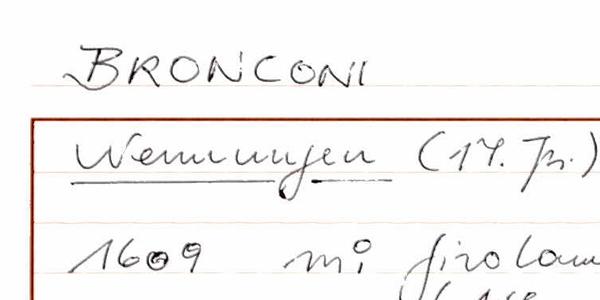 BRONCONI
Nennungen (17. Jh.)
1609 mi Girolam